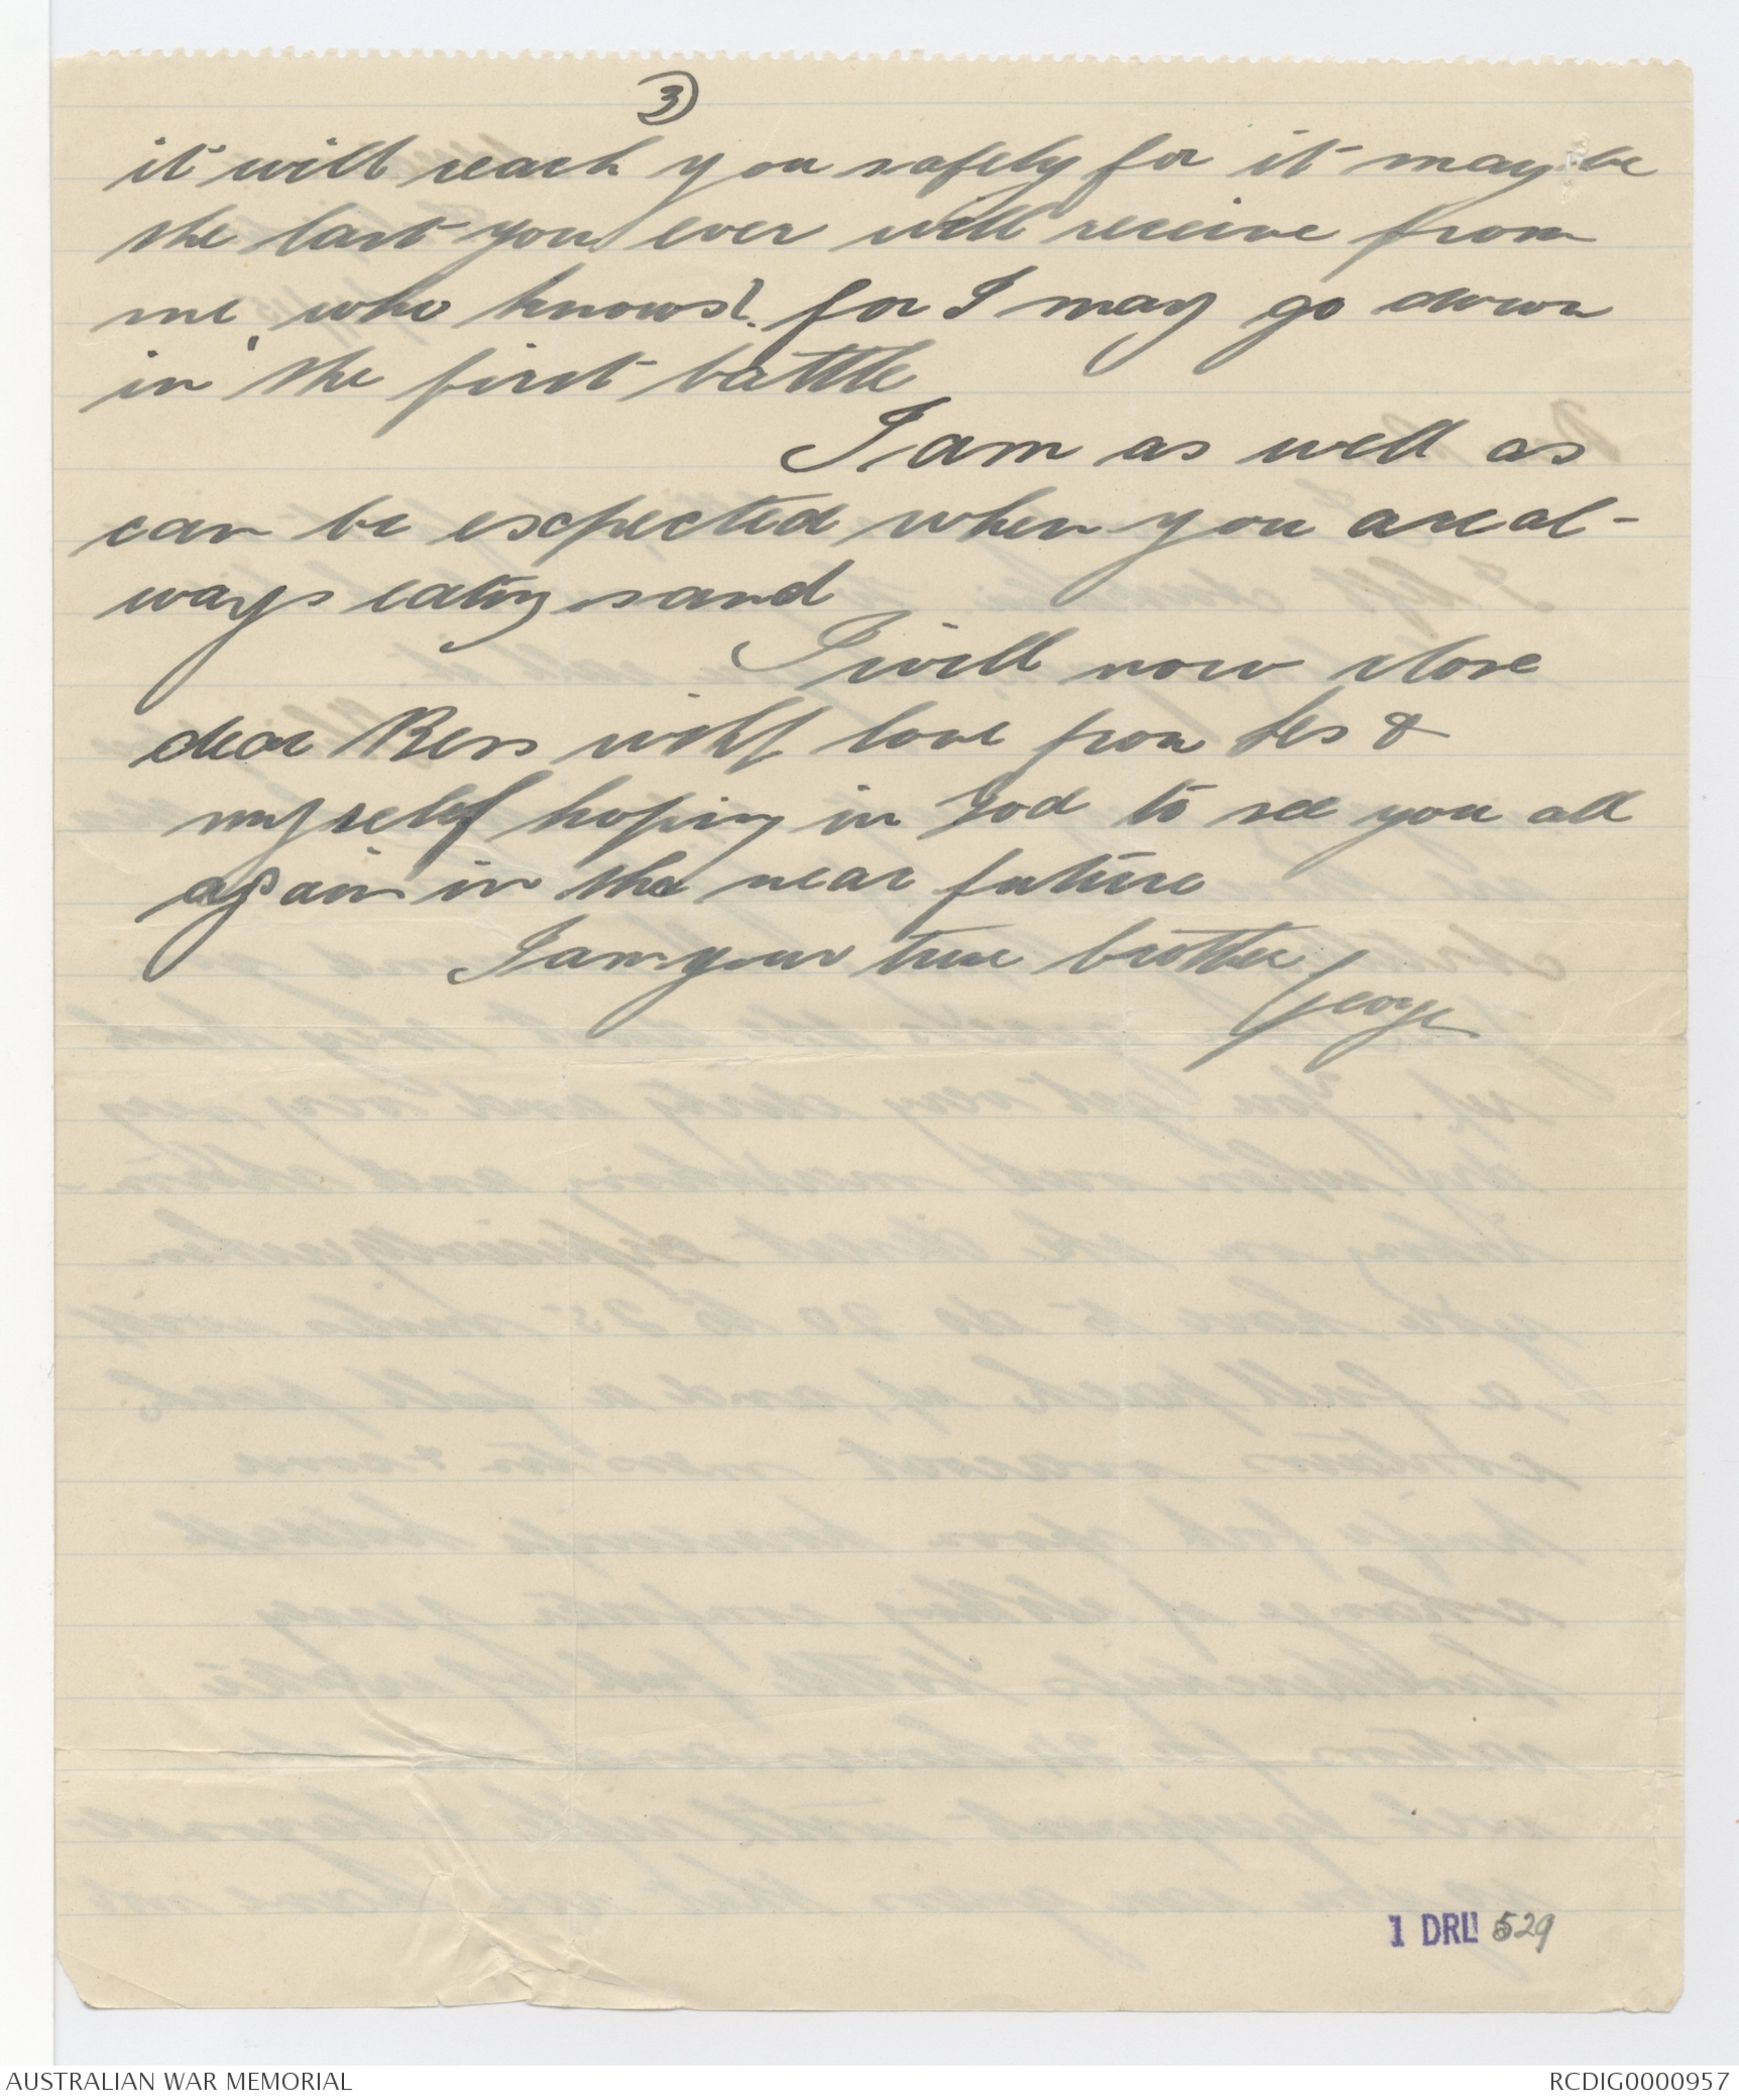 3
it will reach you safely for it may be
the last you ever will receive from
me, who knows? for I may go down
in the first battle
I am as well as
can be expected when you are al-
ways eating sand
I will now close
dear Bess with love from Les &
myself hoping in God to see you all
again in the near future
I am your true brother
George
1 DRL 529
AUSTRALIAN WAR MEMORIAL
RCDIG0000957